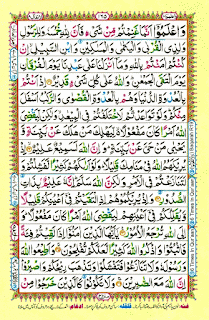 وَاعْلَمُوْا اَنَّمَا غَنِمْتُمْ مِّنْ شَیْءٍ فَاَنَّ لِلّٰهِ خُمُسَهٗ وَلِلرَّسُوْلِ
وَلِذِی الْقُرْبٰی وَالْیَتٰمٰی وَالْمَسٰكِیْنِ وَابْنِ السَّبِیْلِ اِنْ
كُنْتُمْ اٰمَنْتُمْ بِاللّٰهِ وَمَاۤ اَنْزَلْنَا عَلٰی عَبْدِنَا یَوْمَ الْفُرْقَانِ
یَوْمَ الْتَقَی الْجَمْعٰنِ وَاللّٰهُ عَلٰی كُلِّ شَیْءٍ قَدِیْرٌ اِذْ اَنْتُمْ
بِالْعُدْوَةِ الدُّنْیَا وَهُمْ بِالْعُدْوَةِ الْقُصْوٰی وَالرَّكْبُ اَسْفَلَ
مِنْكُمْ وَلَوْ تَوَاعَدْتُّمْ لَاخْتَلَفْتُمْ فِی الْمِیْعٰدِ وَلٰكِنْ لِّیَقْضِیَ
اللّٰهُ اَمْرًا كَانَ مَفْعُوْلًا لِّیَهْلِكَ مَنْ هَلَكَ عَنْ بَیِّنَةٍ وَّ
یَحْیٰی مَنْ حَیَّ عَنْ بَیِّنَةٍ وَاِنَّ اللّٰهَ لَسَمِیْعٌ عَلِیْمٌ اِذْ
یُرِیْكَهُمُ اللّٰهُ فِیْ مَنَامِكَ قَلِیْلًا وَلَوْ اَرٰىكَهُمْ كَثِیْرًا لَّفَشِلْتُمْ
وَلَتَنَازَعْتُمْ فِی الْاَمْرِ وَلٰكِنَّ اللّٰهَ سَلَّمَ اِنَّهٗ عَلِیْمٌ بِذَاتِ
الصُّدُوْرِ وَاِذْ یُرِیْكُمُوْهُمْ اِذِ الْتَقَیْتُمْ فِیْۤ اَعْیُنِكُمْ قَلِیْلًا
وَّیُقَلِّلُكُمْ فِیْۤ اَعْیُنِهِمْ لِیَقْضِیَ اللّٰهُ اَمْرًا كَانَ مَفْعُوْلًا وَاِلَی
اللّٰهِ تُرْجَعُ الْاُمُوْرُ یٰۤاَیُّهَا الَّذِیْنَ اٰمَنُوْۤا اِذَا لَقِیْتُمْ فِئَةً
فَاثْبُتُوْا وَاذْكُرُوا اللّٰهَ كَثِیْرًا لَّعَلَّكُمْ تُفْلِحُوْنَ وَاَطِیْعُوا اللّٰهَ
وَرَسُوْلَهٗ وَلَا تَنَازَعُوْا فَتَفْشَلُوْا وَتَذْهَبَ رِیْحُكُمْ وَاصْبِرُوْا
اِنَّ اللّٰهَ مَعَ الصّٰبِرِیْنَ وَلَا تَكُوْنُوْا كَالَّذِیْنَ خَرَجُوْا مِنْ